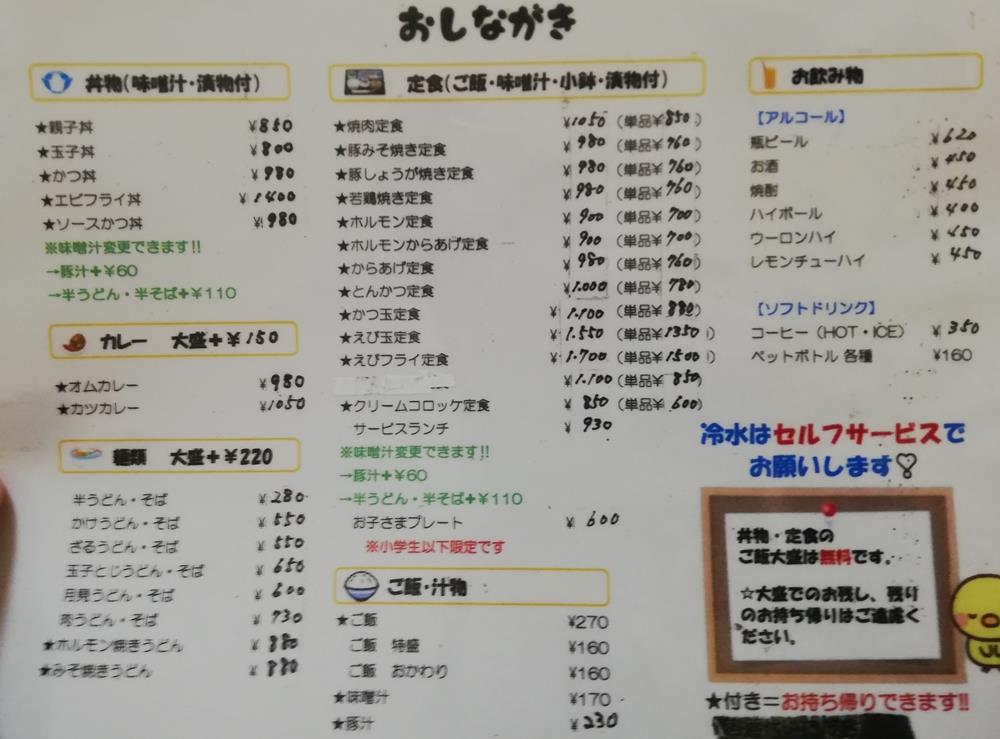 おしながき
丼物(味噌汁・漬物付)
★親子丼 ¥850
★玉子丼 ¥800
★かつ丼 ¥980
★エビフライ丼 ¥1400
★ソースかつ丼 ¥980
※味噌汁変更できます!!
→豚汁+¥60
→半うどん・半そば+¥110
カレー 大盛+¥150
★オムカレー ¥980
★カツカレー ¥1050
麺類 大盛+¥220
半うどん・そば ¥280
かけうどん・そば ¥550
ざるうどん・そば ¥550
玉子とじうどん・そば ¥650
月見うどん・そば ¥600
肉うどん・そば ¥730
★ホルモン焼きうどん ¥880
★みそ焼きうどん ¥880
定食(ご飯・味噌汁・小鉢・漬物付)
★焼肉定食 ¥1050 (単品¥850)
★豚みそ焼き定食 ¥980 (単品¥760)
★豚しょうが焼き定食 ¥980 (単品¥760)
★若鶏焼き定食 ¥980 (単品¥760)
★ホルモン定食 ¥900 (単品¥700)
★ホルモンからあげ定食 ¥900 (単品¥700)
★からあげ定食 ¥980 (単品¥760)
★とんかつ定食 ¥1.000 (単品¥780)
★かつ玉定食 ¥1.100 (単品¥880)
★えび玉定食 ¥1.550 (単品¥1350)
★えびフライ定食 ¥1.700 (単品¥1500)
¥1.100 (単品¥850)
★クリームコロッケ定食 ¥850 (単品¥600)
サービスランチ ¥930
※味噌汁変更できます!!
→豚汁+¥60
→半うどん・半そば+¥110
お子さまプレート ¥600
※小学生以下限定です
ご飯・汁物
★ご飯 ¥270
ご飯 特盛 ¥160
ご飯 おかわり ¥160
★味噌汁 ¥170
★豚汁 ¥230
お飲み物
【アルコール】
瓶ビール ¥620
お酒 ¥450
焼酎 ¥450
ハイボール ¥400
ウーロンハイ ¥450
レモンチューハイ ¥450
【ソフトドリンク】
コーヒー(HOT・ICE) ¥350
ペットボトル 各種 ¥160
冷水はセルフサービスで
お願いします♡
丼物・定食の
ご飯大盛は無料です。
☆大盛でのお残し、残り
のお持ち帰りはご遠慮く
ださい。
★付き=お持ち帰りできます!!